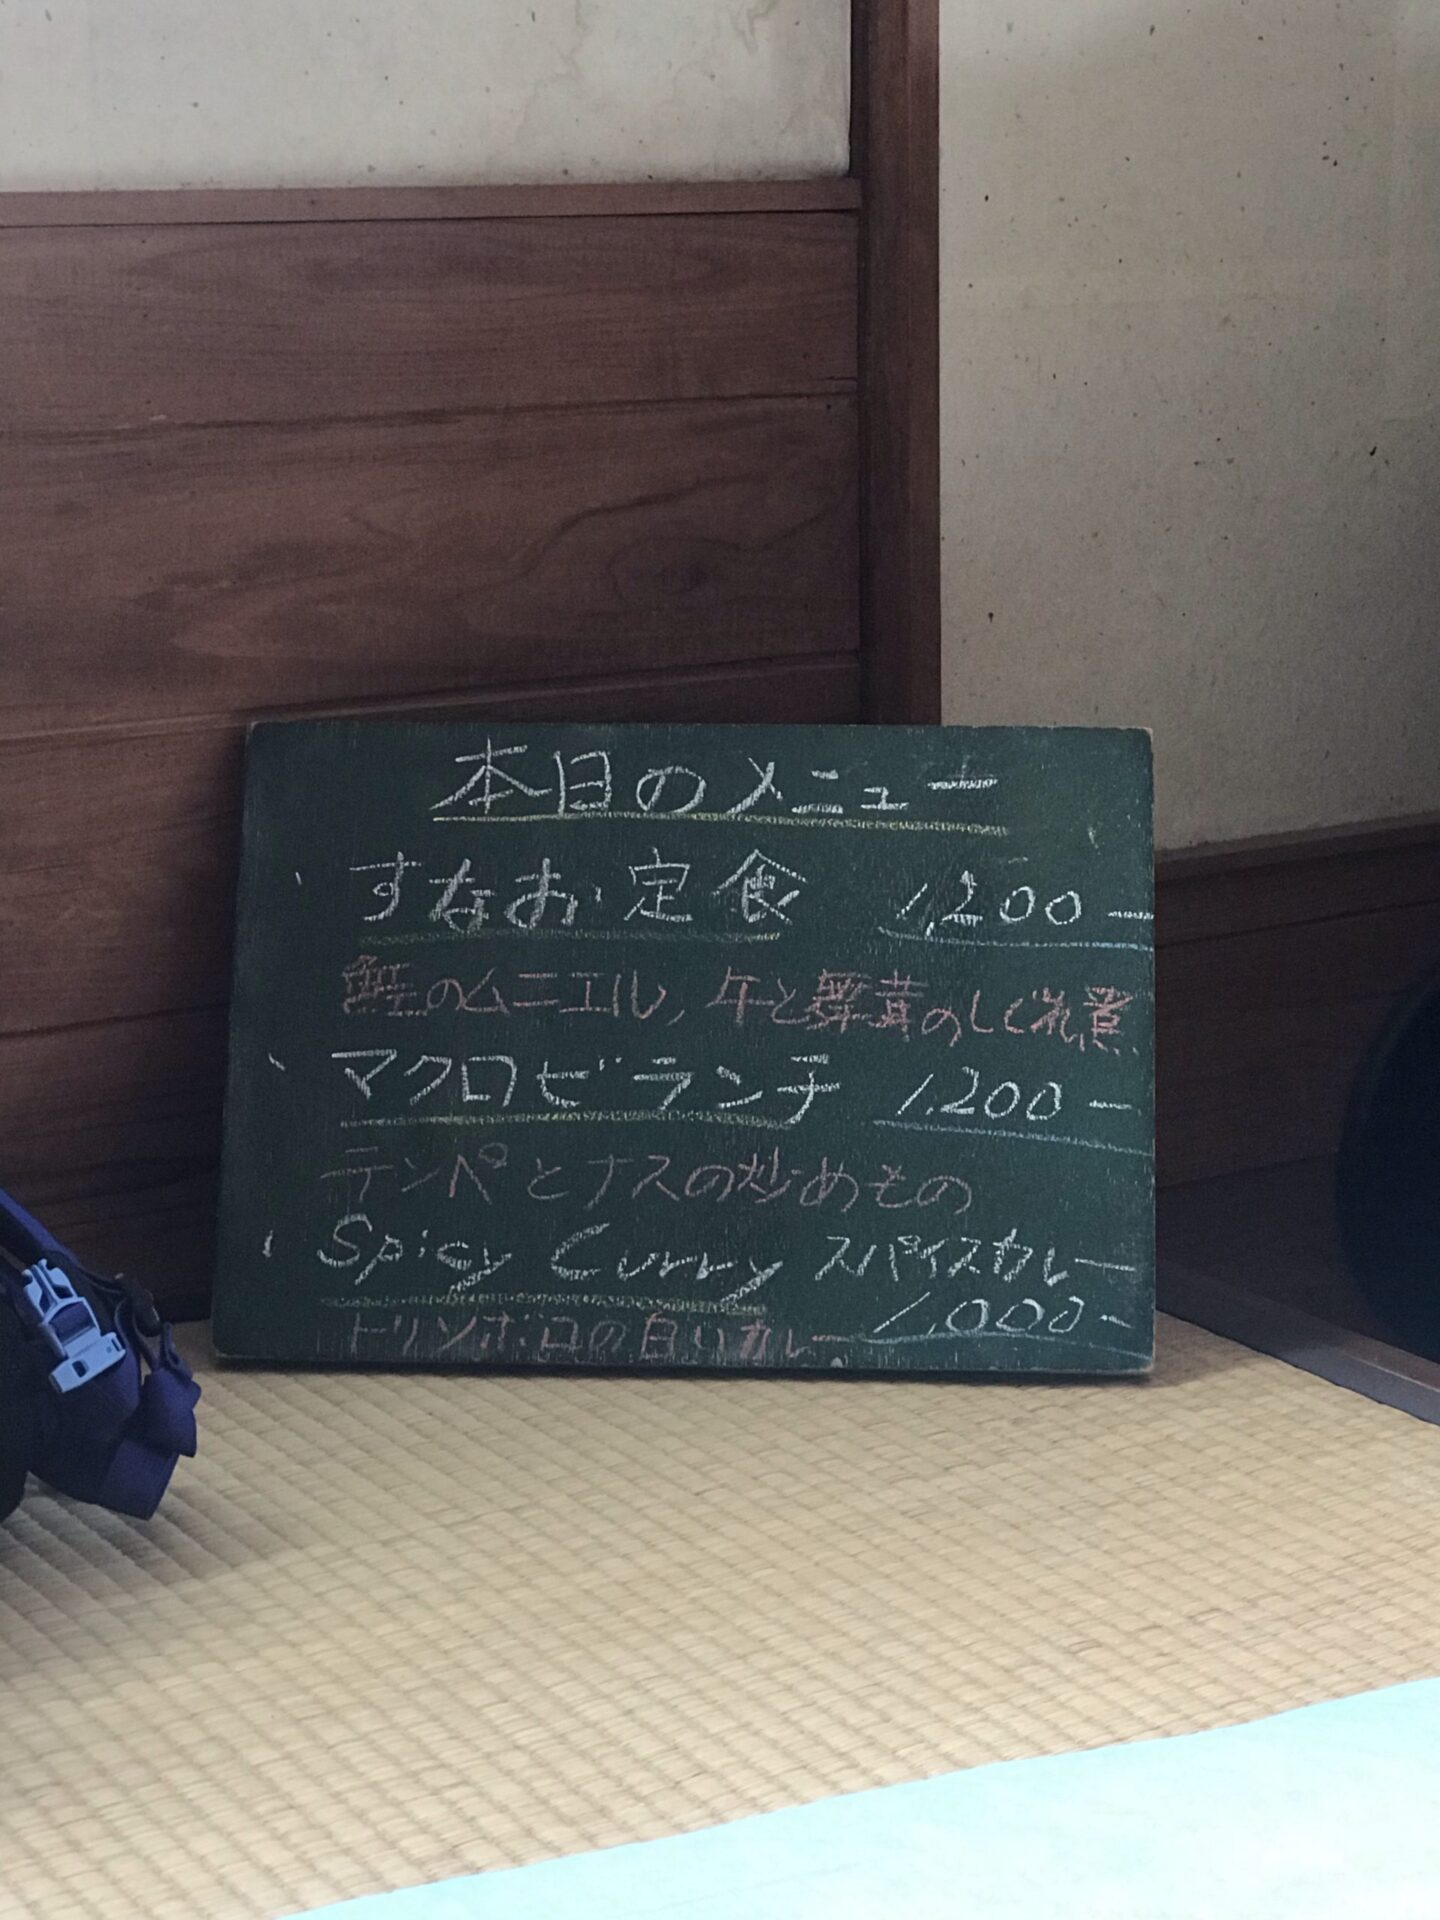 本日のメニュー
、すなお定食 1,200-
鮭のムニエル, 牛と舞茸のしぐれ煮
、マクロビランチ 1.200-
テンペとナスの炒めもの
、Spicy Curry スパイスカレー
1,000-
の白いカレー